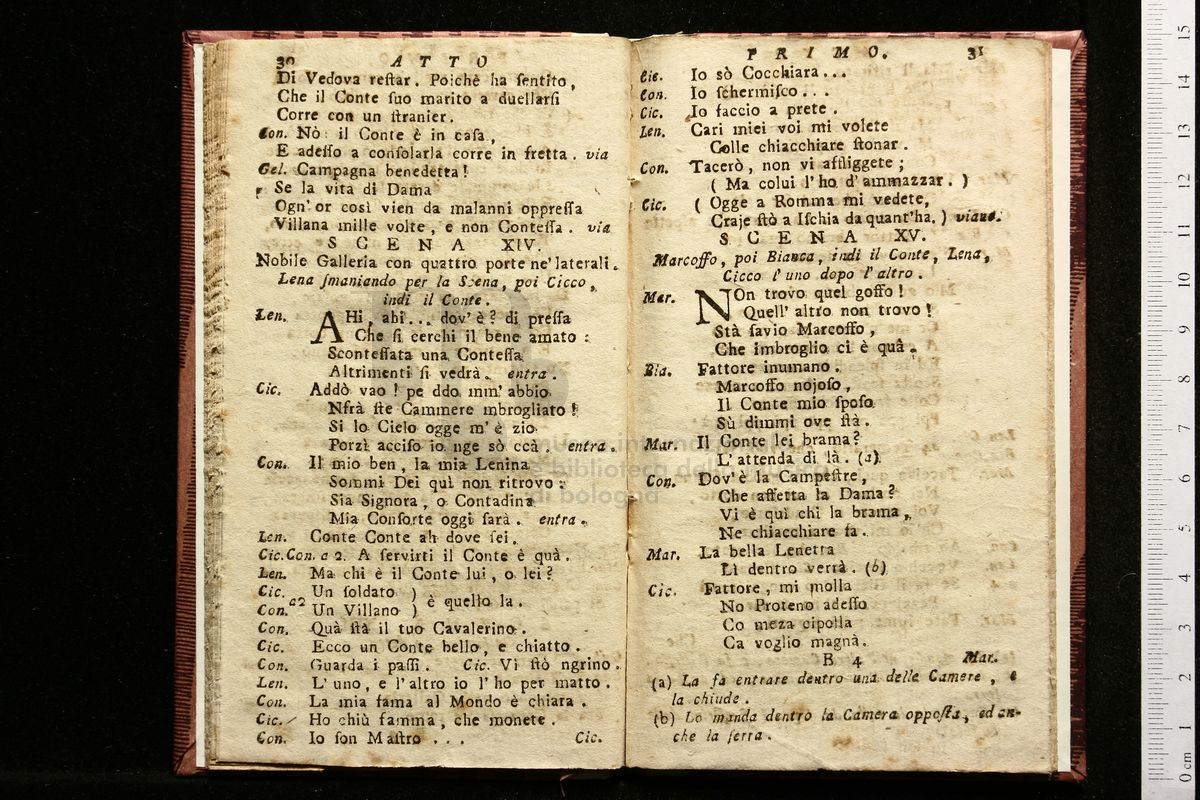 30 ATTO
Di Vedova restar. Poichè ha sentito,
Che il Conte suo marito a duellarsi
Corre con un stranier.
Con. Nò: il Conte è in casa,
E adesso a consolarla corre in fretta. via
Gel. Campagna benedetta!
Se la vita di Dama
Ogn'or così vien da malanni oppressa
Villana mille volte, e non Contessa. via
SCENA XIV.
Nobile Galleria con quattro porte ne' laterali.
Lena smaniando per la Scena, poi Cicco,
indi il Conte.
Len. AHi, ahi... dov'è? di pressa
Che si cerchi il bene amato:
Scontessata una Contessa
Altrimenti si vedrà. entra.
Cic. Addò vao! pe ddo mm' abbio
Nfrà ste Cammere mbrogliato!
Si lo Cielo ogge m' è zio
Porzì acciso io nge sò ccà. entra.
Con. Il mio ben, la mia Lenina
Sommi Dei quì non ritrovo:
Sia Signora, o Contadina
Mia Consorte oggi sarà. entra.
Len. Conte Conte ah dove sei.
Cic. Con. a 2. A servirti il Conte è quà.
Len. Ma chi è il Conte lui, o lei?
Cic. Un soldato )
a2 è quello la.
Con. Un Villano )
Con. Quà stà il tuo Cavalerino.
Cic. Ecco un Conte bello, e chiatto.
Con. Guarda i passi. Cic. Vi stò ngrino.
Len. L' uno, e l'altro io l'ho per matto.
Con. La mia fama al Mondo è chiara.
Cic. Ho chiù famma, che monete.
Con. Io son Mastro ...
Cic.
PRIMO. 31
Cic. Io sò Cocchiara...
Con. Io schermisco...
Cic. Io faccio a prete.
Len. Cari miei voi mi volete
Colle chiacchiare stonar.
Con. Tacerò, non vi affliggete;
( Ma colui l'ho d'ammazzar. )
Cic. ( Ogge a Romma mi vedete,
Craje stò a Ischia da quant'ha. ) viano.
SCENA XV.
Marcoffo, poi Bianca, indi il Conte, Lena,
Cicco l'uno dopo l'altro.
Mar. NOn trovo quel goffo!
Quell' altro non trovo!
Stà savio Marcoffo,
Che imbroglio ci è quà.
Bia. Fattore inumano.
Marcoffo nojoso,
Il Conte mio sposo
Sù dimmi ove stà.
Mar. Il Conte lei brama?
L'attenda di là. (a)
Con. Dov'è la Campestre,
Che affetta la Dama?
Vi è quì chi la brama,
Ne chiacchiare fa.
Mar. La bella Lenetta
Lì dentro verrà. (b)
Cic. Fattore, mi molla
No Proteno adesso
Co meza cipolla
Ca voglio magnà.
B 4 Mar.
(a) La fa entrare dentro una delle Camere, e
la chiude.
(b) Lo manda dentro la Camera opposta, ed an-
che la serra.